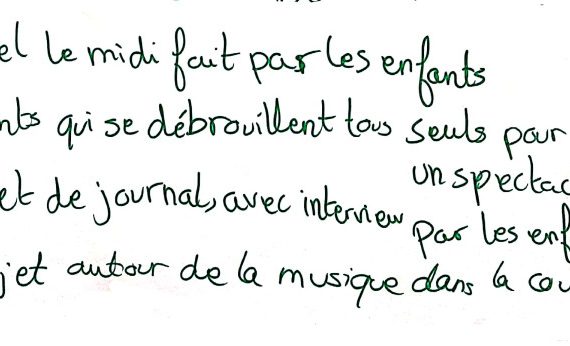 el le midi fait par les enfants
nts qui se débrouillent tous seuls pour
un spectac
et de journal, avec interview
par les enf
jet autour de la musique dans la cou